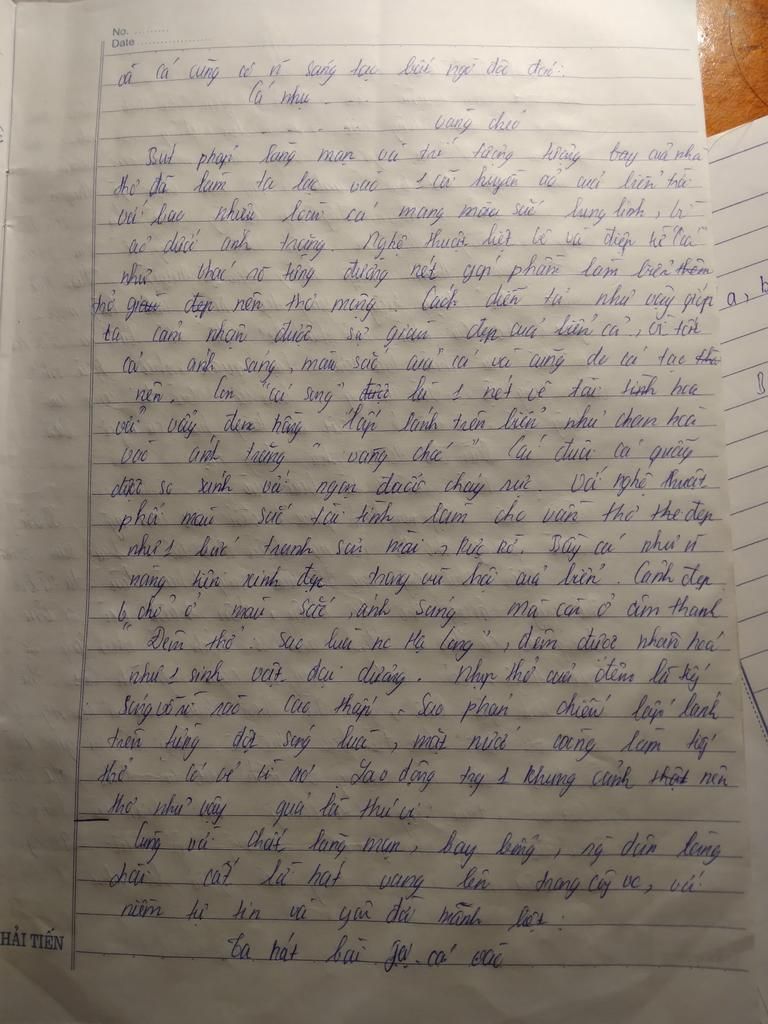 No. ..........
Date ....................
và cá cũng có vì sáng tạo bất ngờ độc đáo:
Cá nhụ ...
... vàng choé
Bút pháp lãng mạn và trí tưởng tượng bay của nhà
thơ đã làm ta lạc vào 1 cõi huyền ảo của biển trời
với bao nhiêu loài cá mang màu sắc lung linh,
ảo dưới ánh trăng. Nghệ thuật liệt kê và điệp từ "cá"
như thác rõ từng đường nét góp phần làm biển
thơ đẹp nên thơ mộng. Cách diễn tả như vậy giúp
ta cảm nhận được sự giàu đẹp của biển cả, vì tất
cả ánh sáng, màu sắc của cá và cũng do cá tạo
nên. Con "cá song" là 1 nét vẽ tài hoa
với vảy đen hồng lấp lánh trên biển như chan hoà
vào ánh trăng "vàng choé" Cái đuôi cá quẫy
được so sánh với ngọn đuốc cháy rực. Với nghệ thuật
phối màu sắc tài tình làm cho vần thơ đẹp
như 1 bức tranh sơn mài, rực rỡ. Bầy cá như n~
nàng tiên xinh đẹp trong vũ hội của biển. Cảnh đẹp
k chỉ ở màu sắc, ánh sáng mà còn ở âm thanh
"Đêm thở: sao lùa nc Hạ Long", đêm được nhân hoá
như 1 sinh vật đại dương. Nhịp thở của đêm là tiếng
sóng vỗ rì rào, cao thấp. Sao phản chiếu lấp lánh
trên từng đợt sóng lùa, mặt nước cũng làm tiếng
thở có vẻ kì ảo. Lao động trg 1 khung cảnh nên
thơ như vậy quả là thú vị.
Cùng với chất lãng mạn, bay bổng, ng dân làng
chài cất lời hát vang lên trong công vc, với
niềm tự tin và yêu đời mãnh liệt:
Ta hát bài gọi cá vào
HẢI TIẾN
a, b